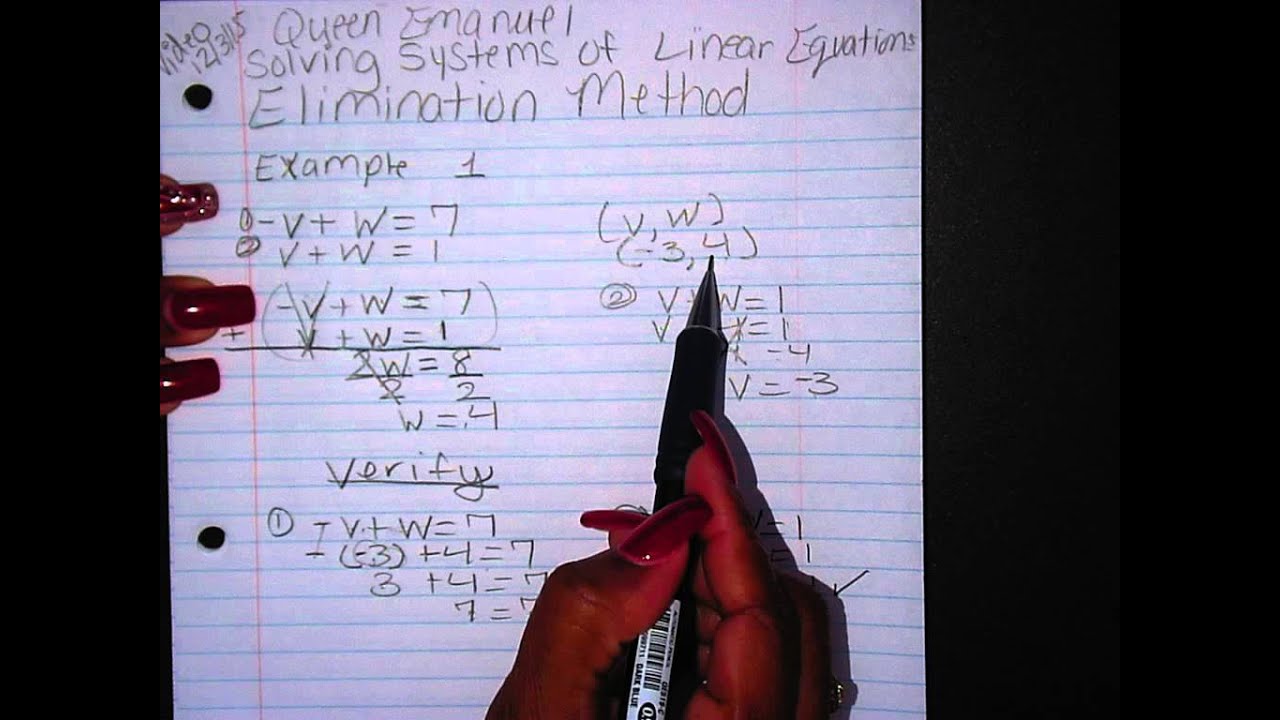 Video 12/31/15
Queen Emanuel
Solving Systems of Linear Equations
Elimination Method
Example 1
① -V + W = 7
② V + W = 1
-V + W = 7
+ V + W = 1
2W = 8
2 2
W = 4
(V, W)
(-3, 4)
② V + W = 1
V = 1
-4
V = -3
Verify
① -V + W = 7
-(-3) + 4 = 7
3 + 4 = 7
7 = 7
= 1
= 1
✓
DARK BLUE